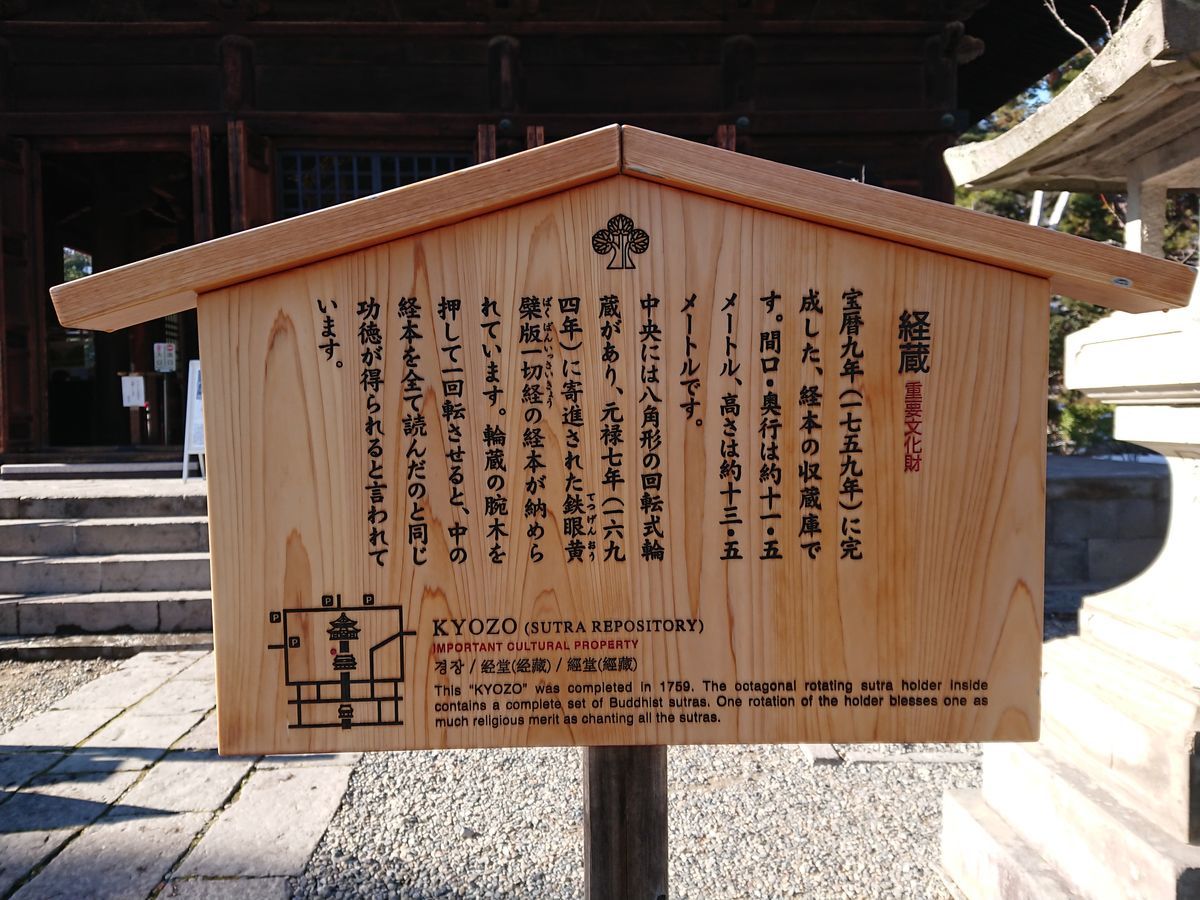 経蔵 重要文化財
宝暦九年(一七五九年)に完
成した、経本の収蔵庫で
す。間口・奥行は約十一・五
メートル、高さは約十三・五
メートルです。
中央には八角形の回転式輪
蔵があり、元禄七年(一六九
四年)に寄進された鉄眼黄
てつげんおう
檗版一切経の経本が納めら
ばくばんいっさいきょう
れています。輪蔵の腕木を
押して一回転させると、中の
経本を全て読んだのと同じ
功徳が得られると言われて
います。
P
P
P
P
KYOZO (SUTRA REPOSITORY)
IMPORTANT CULTURAL PROPERTY
경장 / 经堂(经藏) / 經堂(經藏)
This "KYOZO" was completed in 1759. The octagonal rotating sutra holder inside
contains a complete set of Buddhist sutras. One rotation of the holder blesses one as
much religious merit as chanting all the sutras.